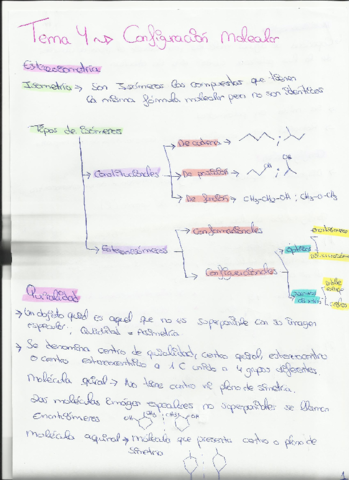 Tema 4 ~> Configuración Molecular
Estereoisometría
Isometría → Son Isómeros los compuestos que tienen
la misma fórmula molecular pero no son idénticos
Tipos de Isómeros
Constitucionales
De cadena
De posición
OH
OH
De función → CH3-CH2-OH ; CH3-O-CH3
Estereoisómeros
Conformacionales
Configuracionales
ópticos
enantiómeros
Quiralidad
→ Un objeto quiral es aquel que no es superponible con su imagen
especular. Quiralidad = Asimetría
→ Se denomina centro de quiralidad, centro quiral, estereocentro
o centro estereogénico a 1 C unido a 4 grupos diferentes.
Molécula quiral → No tiene centro ni plano de simetría.
Dos moléculas imágenes especulares no superponibles se llaman
Enantiómeros
Molécula aquiral → Molécula que presenta centro o plano de
simetría
1